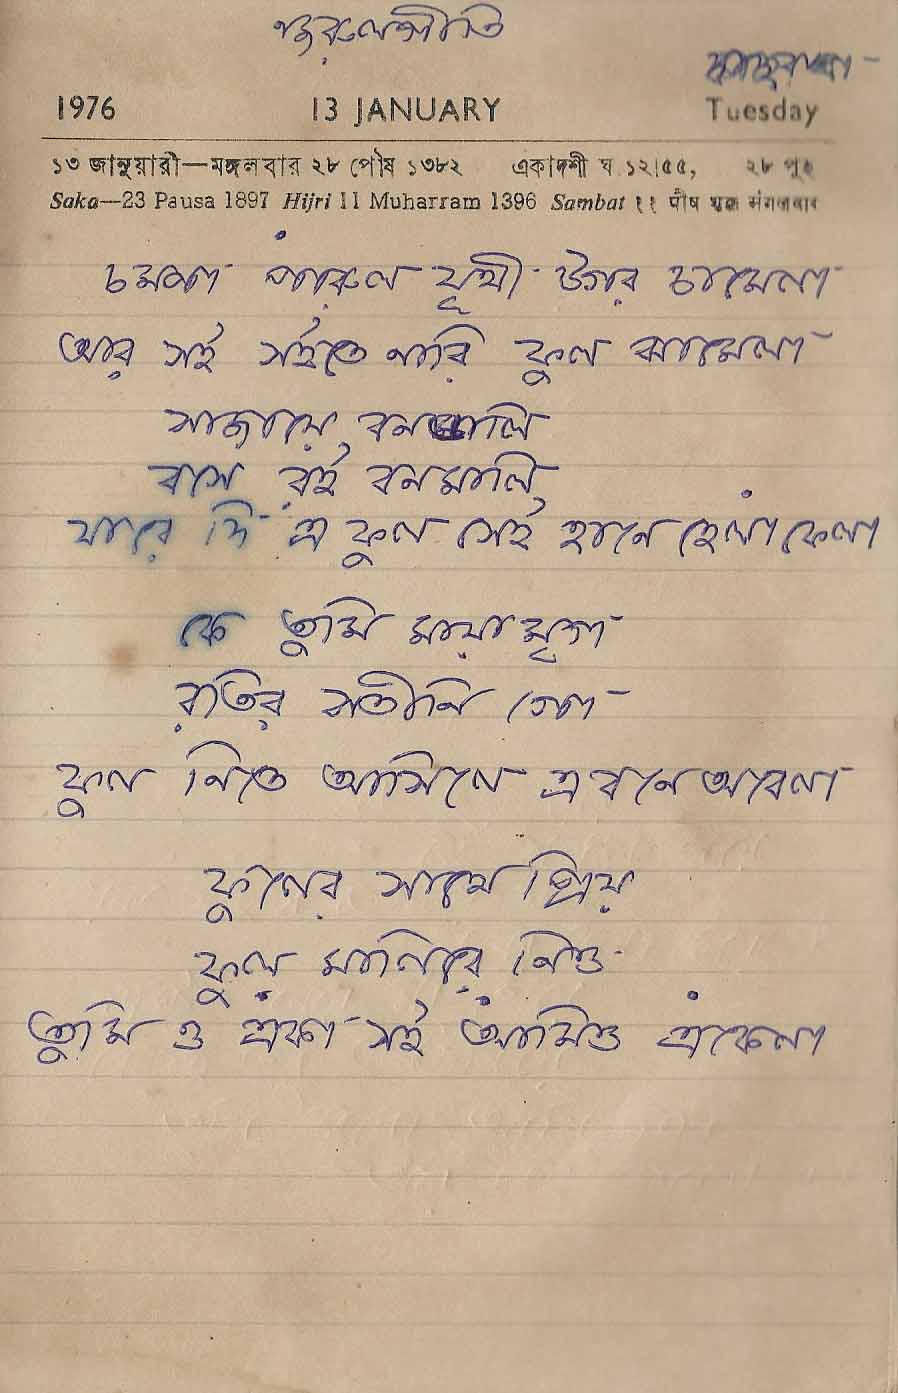 নজরুলগীতি
1976 13 JANUARY Tuesday
১৩ জানুয়ারী—মঙ্গলবার ২৮ পৌষ ১৩৮২ একাদশী ঘ ১২।৫৫, ২৮ পূঃ
Saka—23 Pausa 1897 Hijri 11 Muharram 1396 Sambat ११ पौष शुक्ल मंगलवार
চম্পা পারুল যূথী টগর চামেলা
আর সই সইতে নারি ফুল ঝামেলা
সাজায়ে বনডালি
বসে রই বনমালি
যারে দি এ ফুল সেই হানে হেলাফেলা
কে তুমি মায়া মৃগ
রতির সতীনি গো
ফুল নিতে আসিলে এ বনে অবেলা
ফুলের সাথে প্রিয়
ফুল মালিরে নিও
তুমি ও একা সই আমিও একেলা